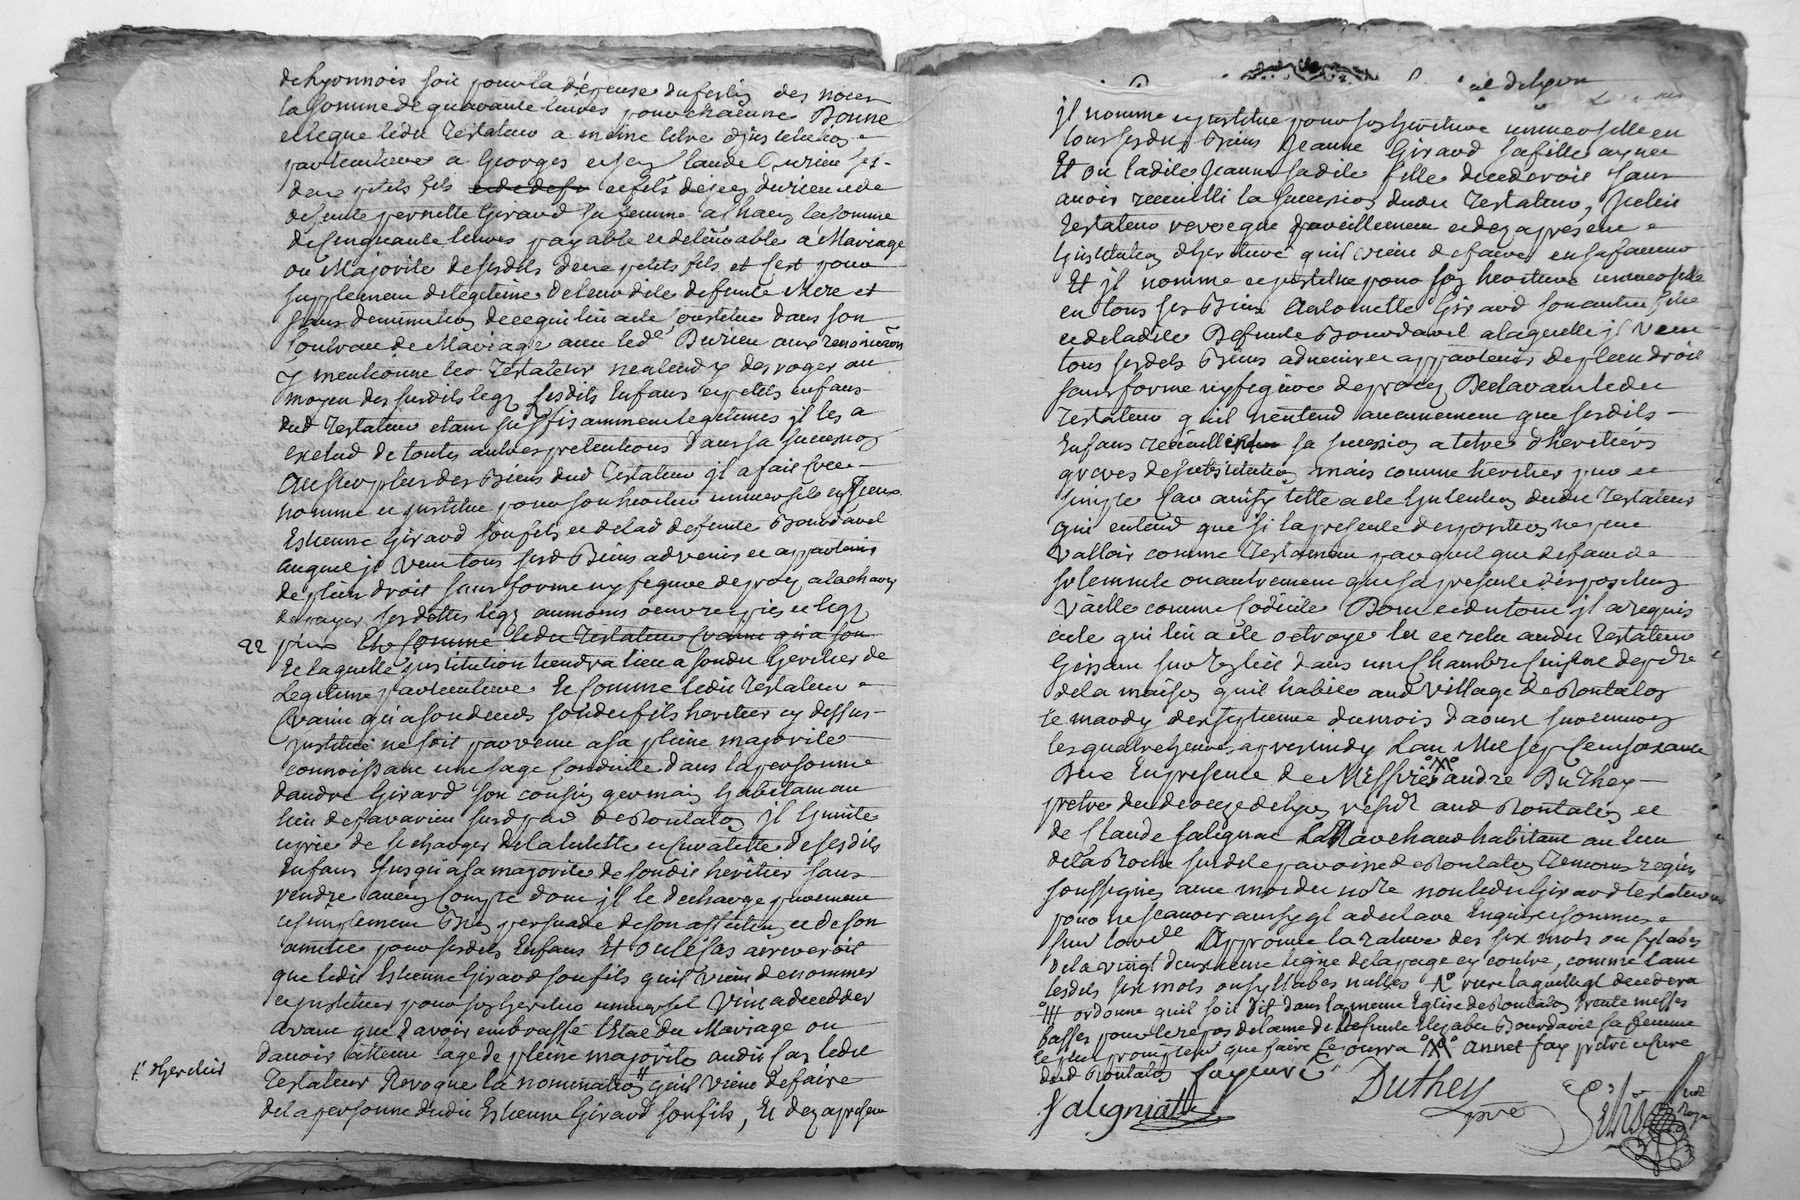 de lyonnois soit pour la dépense du festin des noces
la somme de quarante livres pour chacune Donne
et legue ledit Testateur a meme titre d'institution
particuliere a Georges et Jean Claude Durieu ses
deux petits fils et fils de Jean Durieu et de
defunte pernette Girard sa femme a chacun la somme
de Cinquante livres payable et delivrable a Mariage
ou Majorité de sesdits deux petits fils et sest pour
supplement de legitime de leur dite defunte Mere et
sans diminution de ce qui lui a été constitué dans son
Contrat de Mariage avec led Durieu aux renonciaons
y mentionné led Testateur n'entend y desroger au
moyen des susdits legs sesdits Enfans et petits enfans
dud Testateur etant suffisamment legitimes il les a
exclud de toutes autres pretentions dans sa succession
Au surplus des Biens dud Testateur il a fait
nomme et institue pour son heritier universel
Estienne Girard son fils et de lad defunte Bourdarel
auquel il veut tous sesd Biens advenir et appartenir
de plein droit sans forme ny figure de procès a la charge
de payer ses dettes legs aumones oeuvres pies et legs
22 pies Et Comme ledit Testateur Craint qu'a son
Et laquelle institution tiendra lieu a sondit heritier de
Legitime particuliere Et Comme ledit Testateur
Craint qu'a son decès sondit fils heritier cy dessus
institué ne soit parvenu a sa pleine majorité
connoissant une sage Conduite dans la personne
d'andré Girard son cousin germain habitant au
lieu de favarieu susd par de Rontalon Il l'invite
et prie de se charger de la tutelle et curatelle de sesdits
enfans Jusqu'a la majorité de sondit héritier sans
rendre aucun Compte dont il le decharge purement
et simplement Bien persuadé de son affection et de son
amitié pour sesdits Enfans Et ou le cas arriveroit
que ledit Estienne Girard son fils qu'il vient de nommer
et instituer pour son heritier universel Vint a decedder
avant que d'avoir embrassé l'Etat du Mariage ou
d'avoir atteint l'age de pleine majorité audit cas ledit
d'heritier
Testateur Revoque la nomination qu'il vient de faire
de la personne dudit Estienne Girard son fils, Et dez a present
al de lyon
il nomme et institue pour son heritiere universelle en
tous sesdits Biens Jeanne Girard sa fille aynée
Et ou ladite Jeanne sadite fille decederoit sans
avoir recueilli la succession dudit Testateur, Icelui
Testateur revoque pareillement et dez a present
l'institution d'heritiere qu'il vient de faire en sa faveur
Et il nomme et institue pour son heritiere universelle
en tous ses Biens Antoinette Girard son autre fille
et de ladite Defunte Bourdarel a laquelle il veut
tous sesdits Biens advenir et appartenir de plein droit
sans forme ny figure de procès Declarant ledit
Testateur qu'il n'entend aucunement que sesdits
Enfans recueillent sa succession a titre d'heritiers
greves de substitution mais comme heritier pur et
simple Car ainsy telle a été l'intention dudit Testateur
qui entend que si la presente disposition ne peut
valloir comme Testament par quelque defaut de
solemnité ou autrement que sa presente disposition
vaille comme Codicile Dont et du tout il a requis
acte qui lui a été octroyé lu et relu audit Testateur
Gissant sur son lit dans une Chambre
de la maison qu'il habite aud village de Rontalon
le mardy dix septieme du mois d'aoust sur environ
les quatre heures apres midy L'an Mil sept Cent soixante
Deux En presence de Messires andré Duthey
pretre du dioceze de lyon resid aud Rontalon et
de Claude Salignat Marchand habitant au lieu
de la Roche susdite paroisse de Rontalon Temoins requis
soussignez avec nous dit no're non ledit Girard testateur
pour ne scavoir ainsy qu'il a declaré Enquis et sommé
sur la Approuvé la rature des six mots ou sylabes
de la vingt deuxieme ligne de la page cy contre, comme l'une
lesdits six mots ou syllabes nulles
ordonne qu'il soit dit dans la meme Eglise de Rontalon trente messes
basses pour le repos de l'ame de Defunte Elizabet Bourdarel sa femme
le plus promptemt que faire se pourra annet fay pretre et curé
dud Rontalon fay curé
Salignat
Duthey
ptre